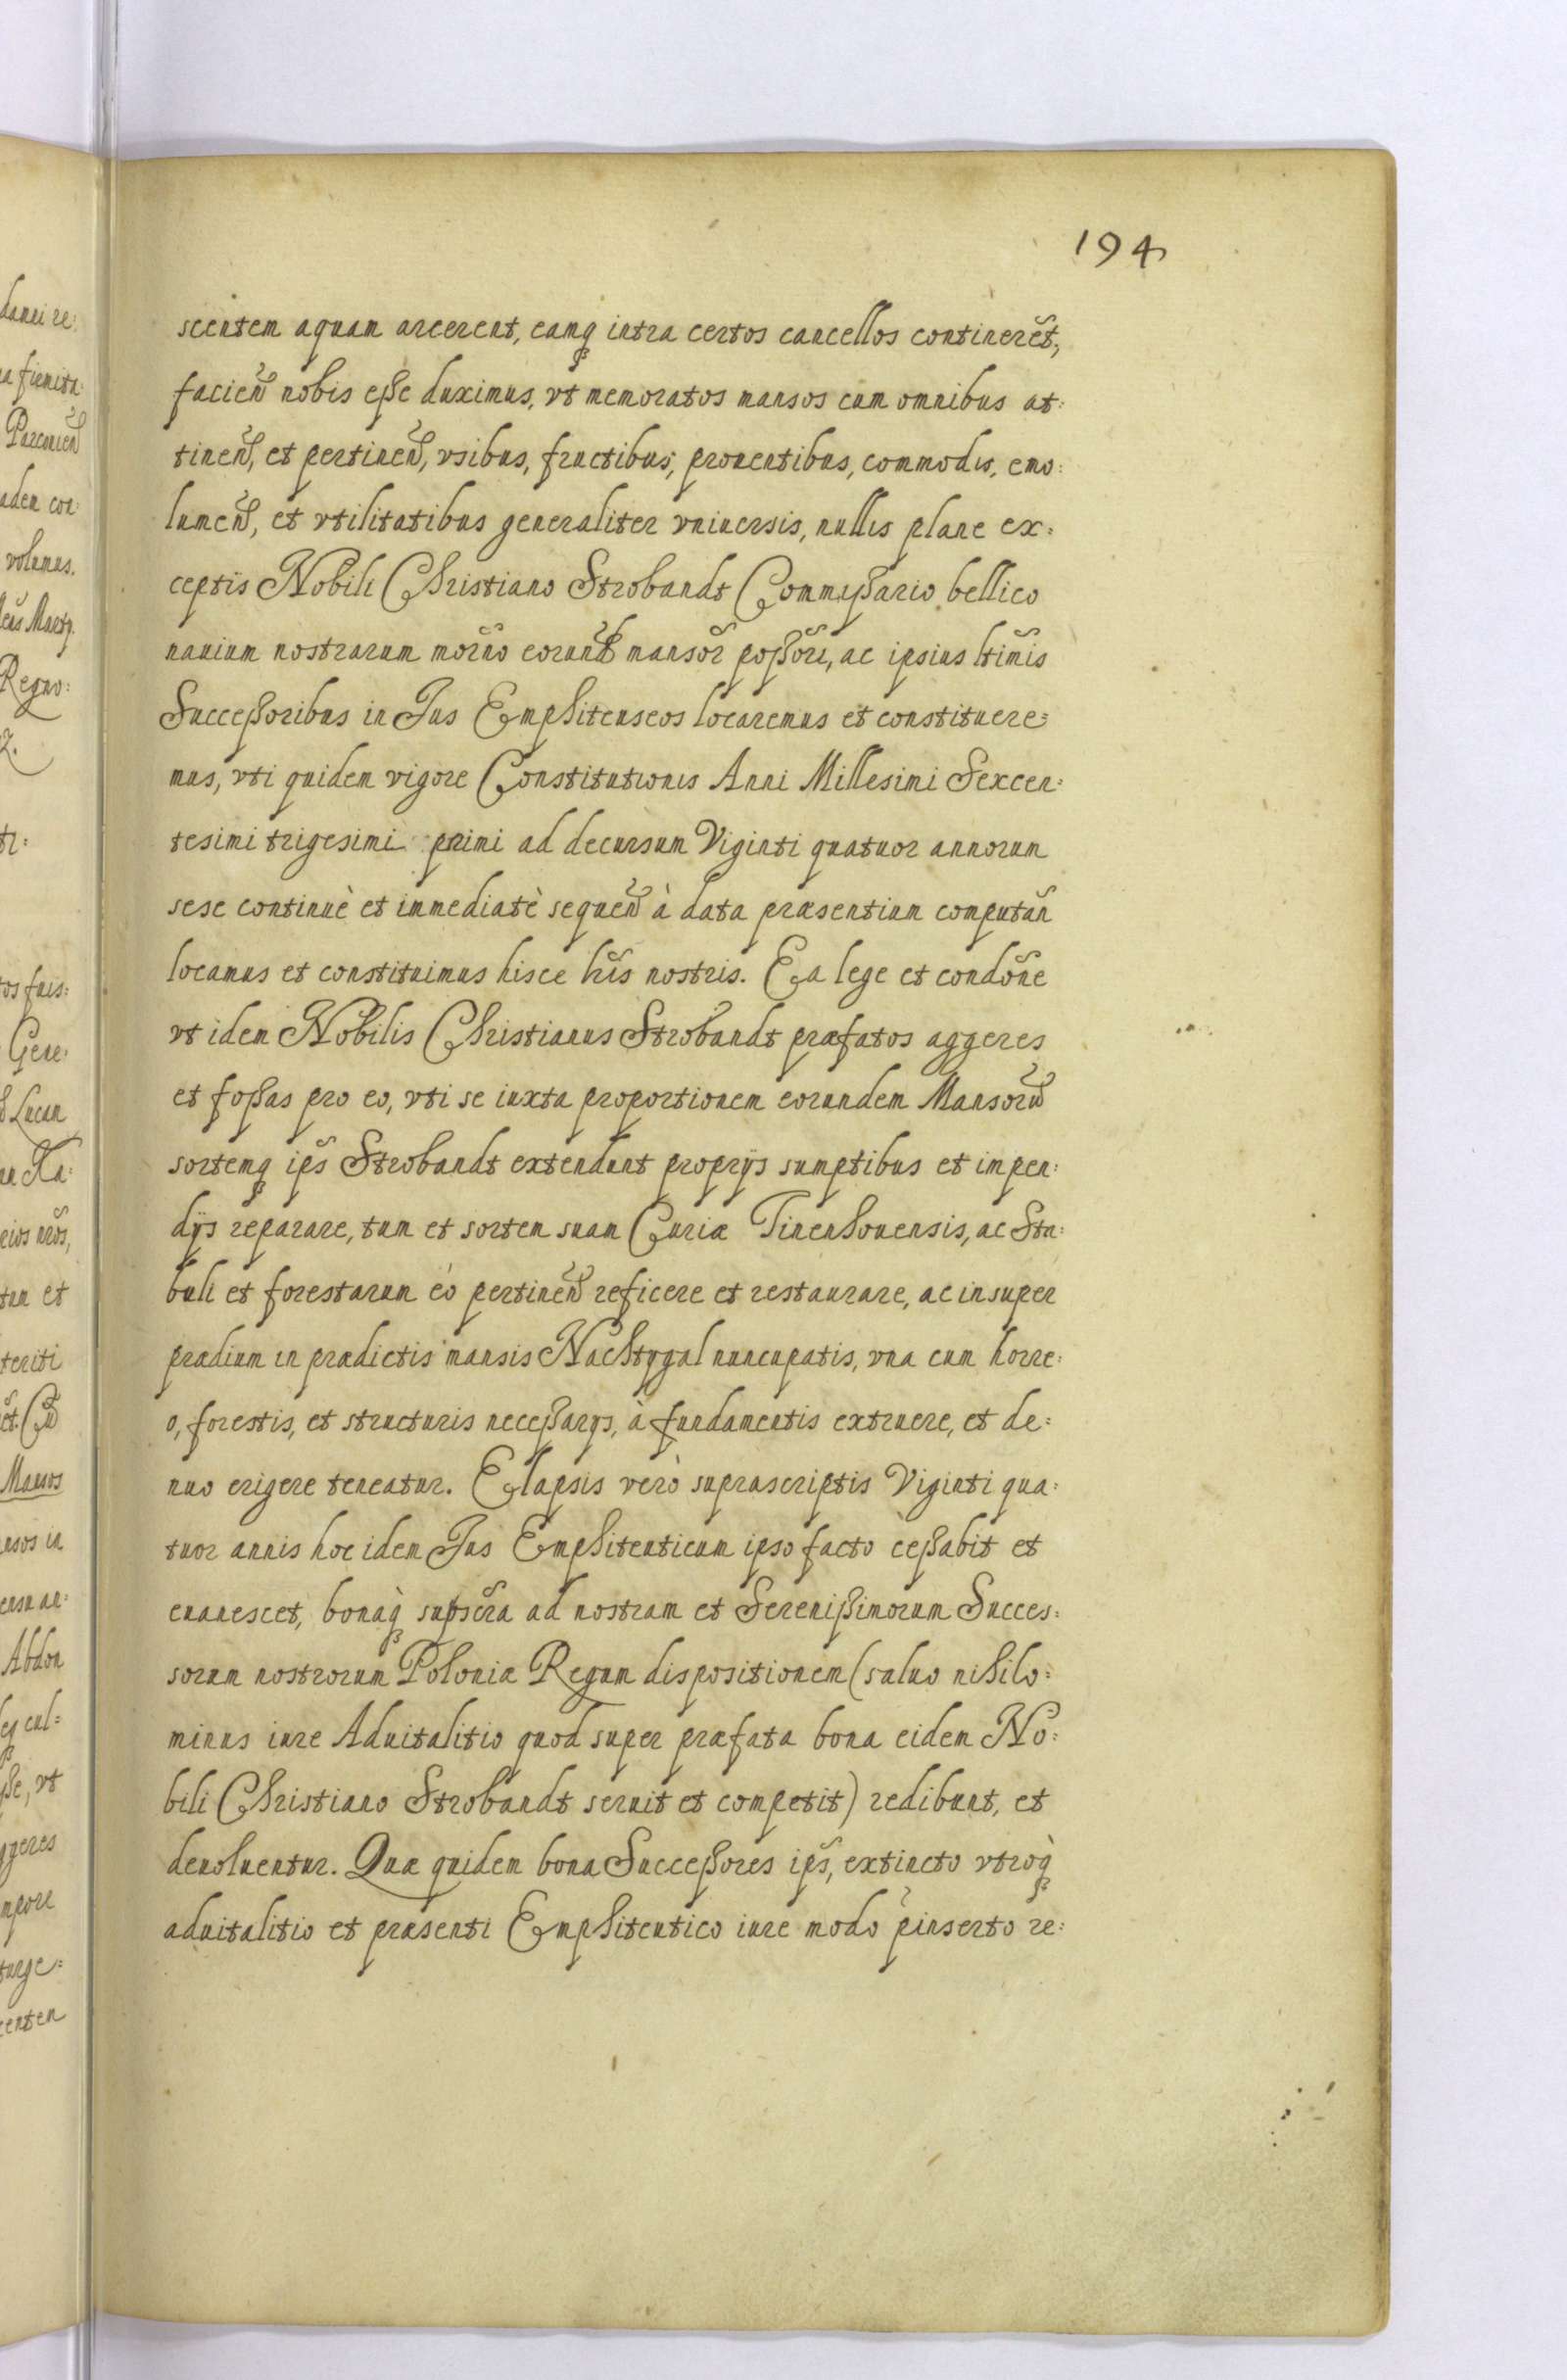 194
scentem aquam arcerent, eamq intra certos cancellos contineret̃,
facieñ nobis esse duximus, vt memoratos mansos cum omnibus at:
tineñ, et pertineñ, vsibus, fructibus, prouentibus, commodis, emo:
lumeñ, et vtilitatibus generaliter vniuersis, nullis plane ex:
ceptis Nobili Christiano Strobandt Commissario bellico
nauium nostrarum mor̃no eorund̃ mansor̃ posšori, ac ipsius ltim̃is
Successoribus in Jus Emphiteuseos locaremus et constituere:
mus, vti quidem vigore Constitutionis Anni Millesimi Sexcen:
tesimi trigesimi primi ad decursum Viginti quatuor annorum
sese continuè et immediatè sequeñ à data præsentium computañ
locamus et constituimus hisce lr̃is nostris. Ea lege et condõne
vt idem Nobilis Christianus Strobandt præfatos aggeres
et fossas pro eo, vti se iuxta proportionem eorundem Mansorũ
sortemq ips̃ Strobandt extendunt proprijs sumptibus et impen:
dijs reparare, tum et sortem suam Curiæ Tinenhouensis, ac Sta:
buli et forestarum eò pertineñ reficere et restaurare, ac insuper
prædium in prædictis mansis Nachtygal nuncupatis, vna cum horre:
o, forestis, et structuris necessarijs, à fundamentis extruere, et de:
nuo erigere teneatur. Elapsis verò suprascriptis Viginti qua:
tuor annis hoc idem Jus Emphiteuticum ipso facto cessabit et
euanescet, bonaq̀ supscr̃a ad nostram et Serenissimorum Succes:
sorum nostrorum Poloniæ Regum dispositionem (saluo nihilo:
minus iure Aduitalitio quod super præfata bona eidem No:
bili Christiano Strobandt seruit et competit) redibunt, et
deuoluentur. Quæ quidem bona Successores ips̃, extincto vtroq̀
aduitalitio et præsenti Emphiteutico iure modo p̃inserto re: